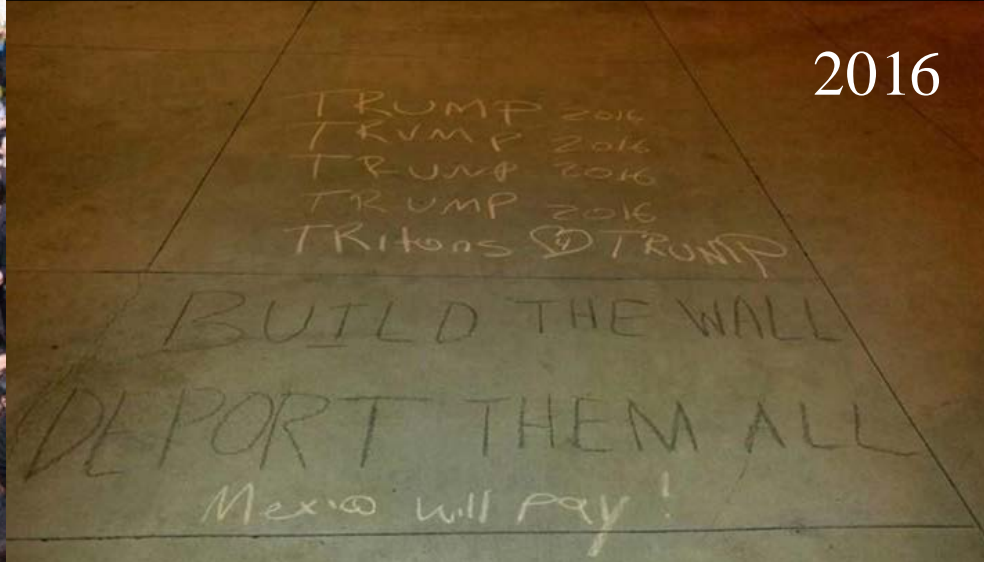 2016
TRUMP 2016
TRUMP 2016
TRUMP 2016
TRUMP 2016
TRItons TRUMP
BUILD THE WALL
DEPORT THEM ALL
Mexico will pay!